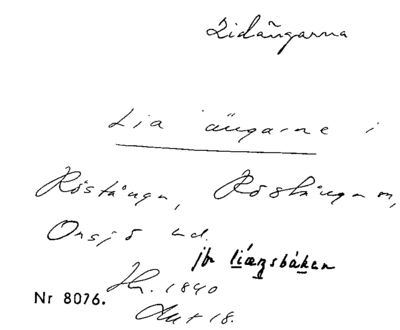 Lidängarna
Lia ängarne i
Röstånga, Röstånga sn,
Onsjö hd.
jfr liæŋsbákan
Hr. 1840
Akt 18.
Nr 8076.